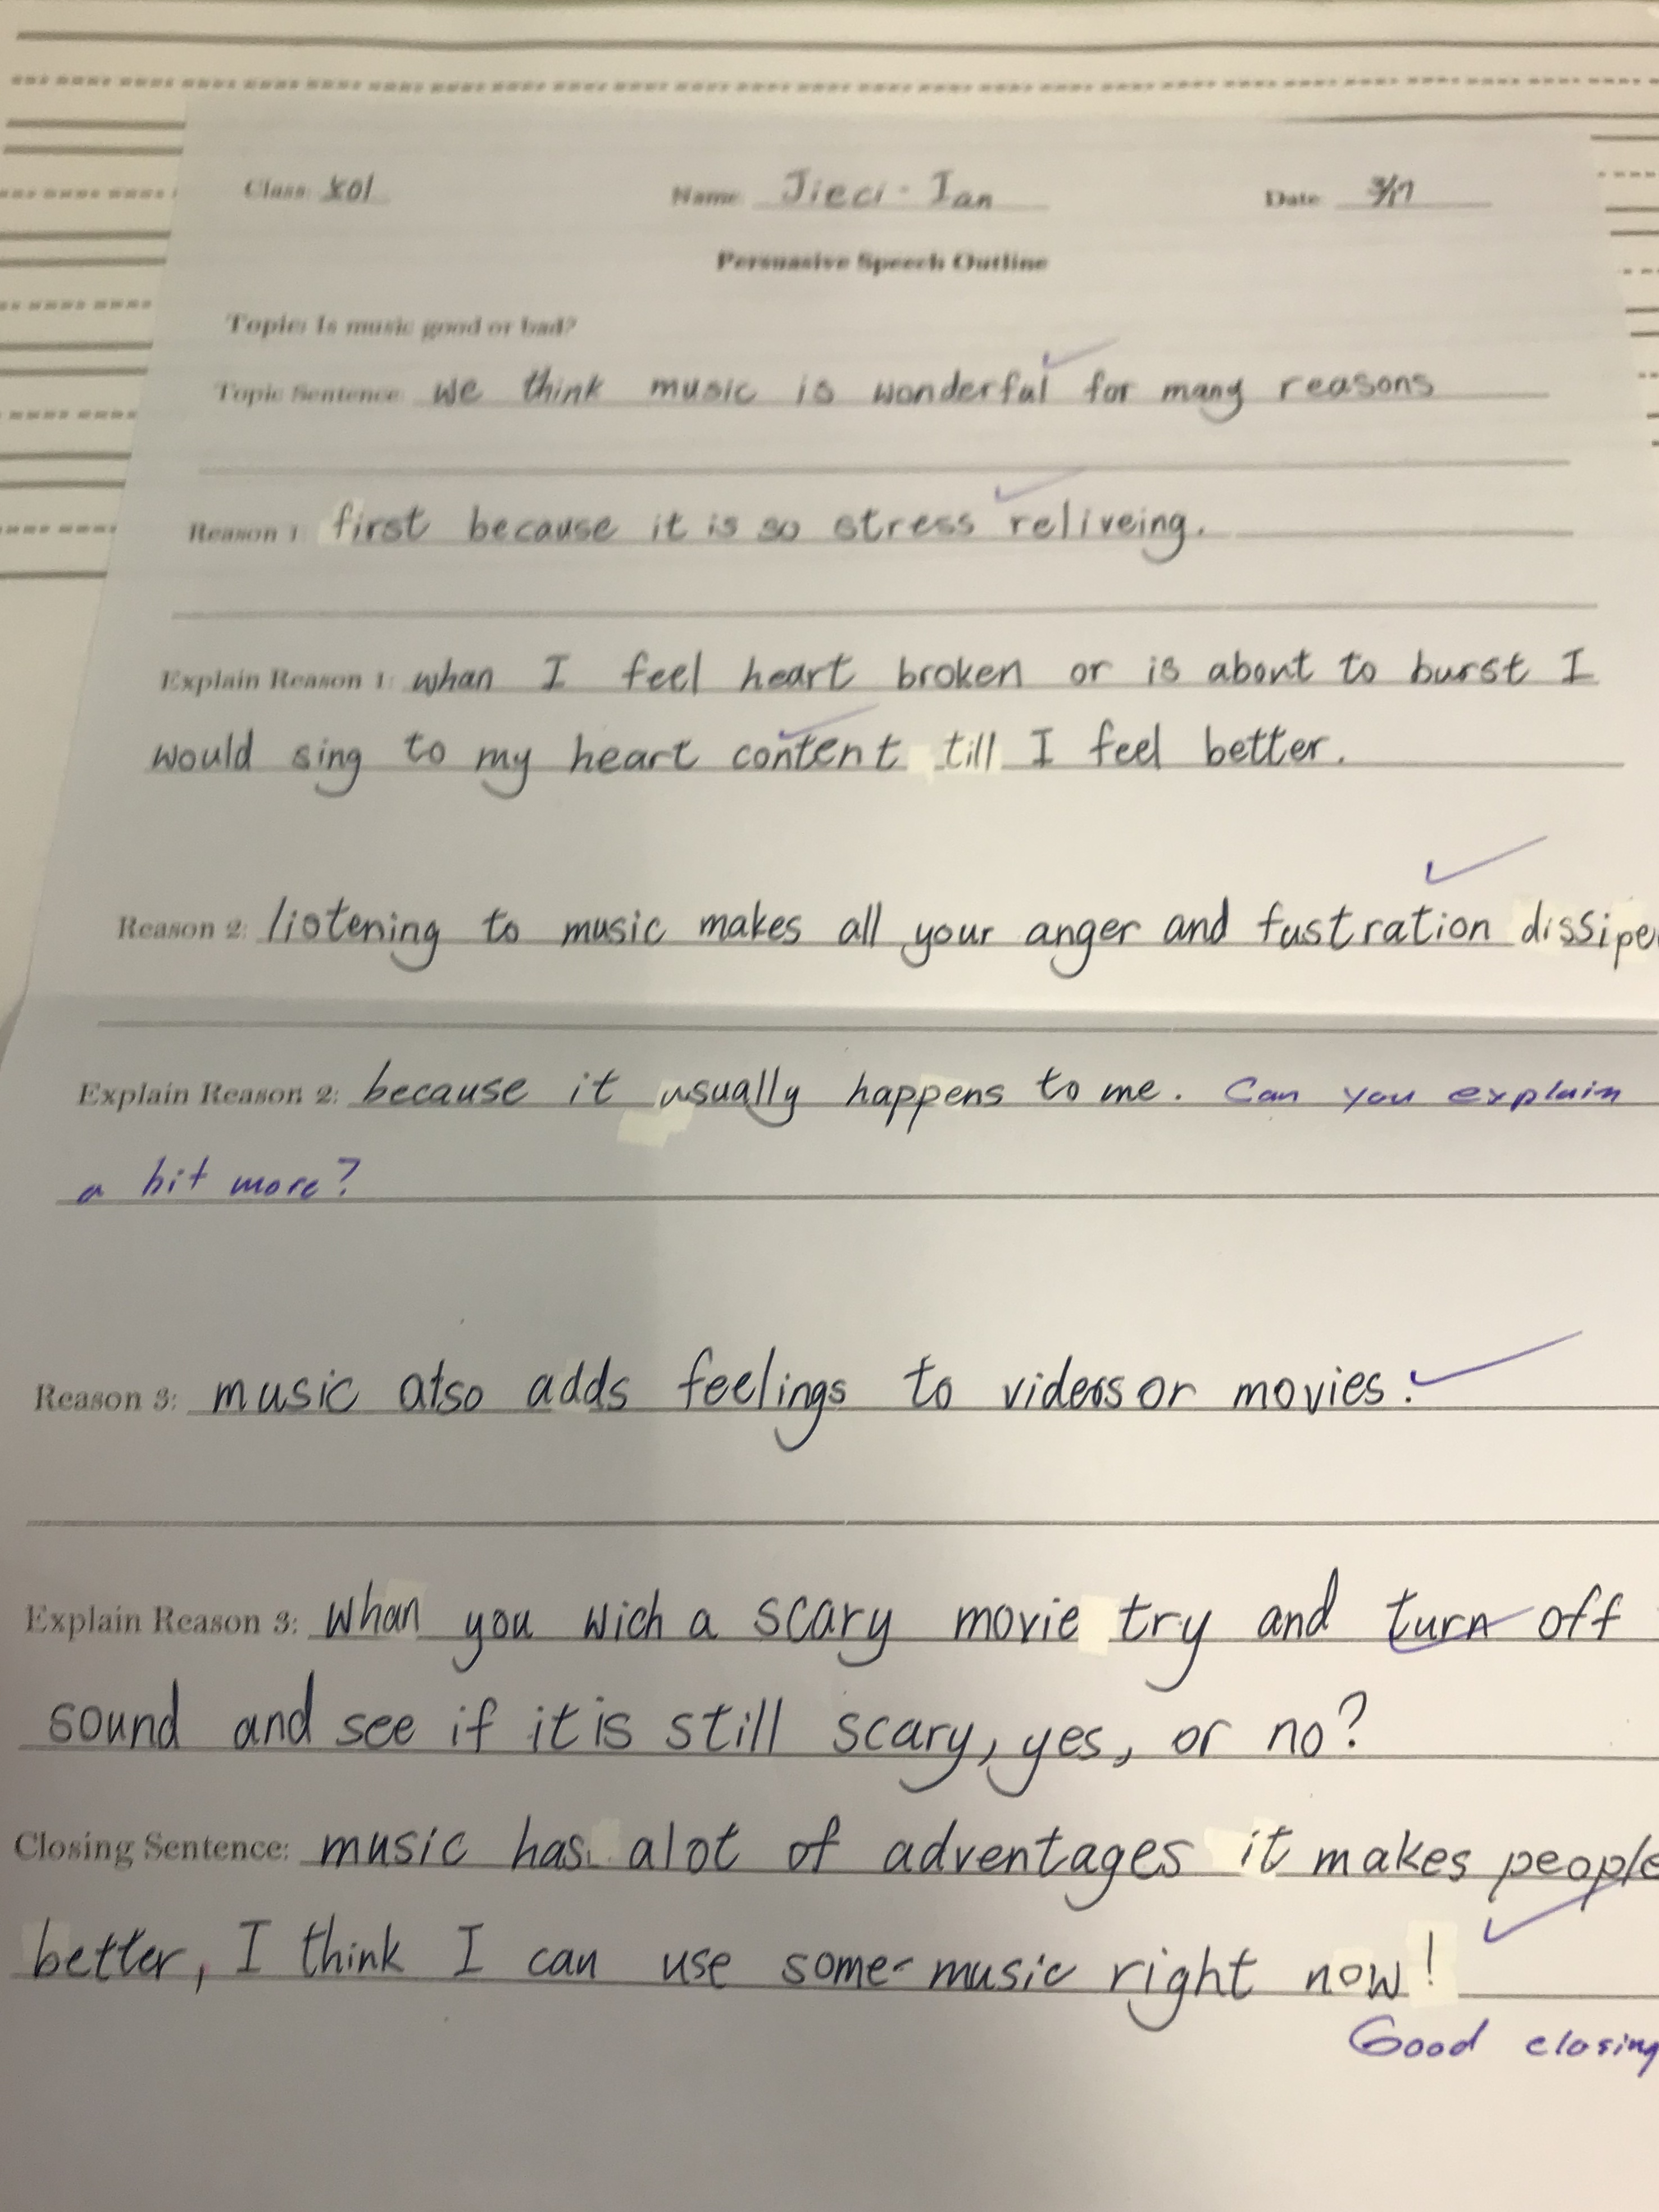 Class: K01 Name: Jieci - Ian Date: 3/17
Persuasive Speech Outline
Topic: Is music good or bad?
Topic Sentence: we think music is wonderful for many reasons
Reason 1: first because it is so stress reliveing.
Explain Reason 1: whan I feel heart broken or is about to burst I
would sing to my heart content till I feel better.
Reason 2: listening to music makes all your anger and fustration dissipe
Explain Reason 2: because it usually happens to me. Can you explain
a bit more?
Reason 3: music also adds feelings to videos or movies.
Explain Reason 3: whan you wich a scary movie try and turn off
sound and see if it is still scary, yes, or no?
Closing Sentence: music has alot of adventages it makes people
better, I think I can use some music right now!
Good closing